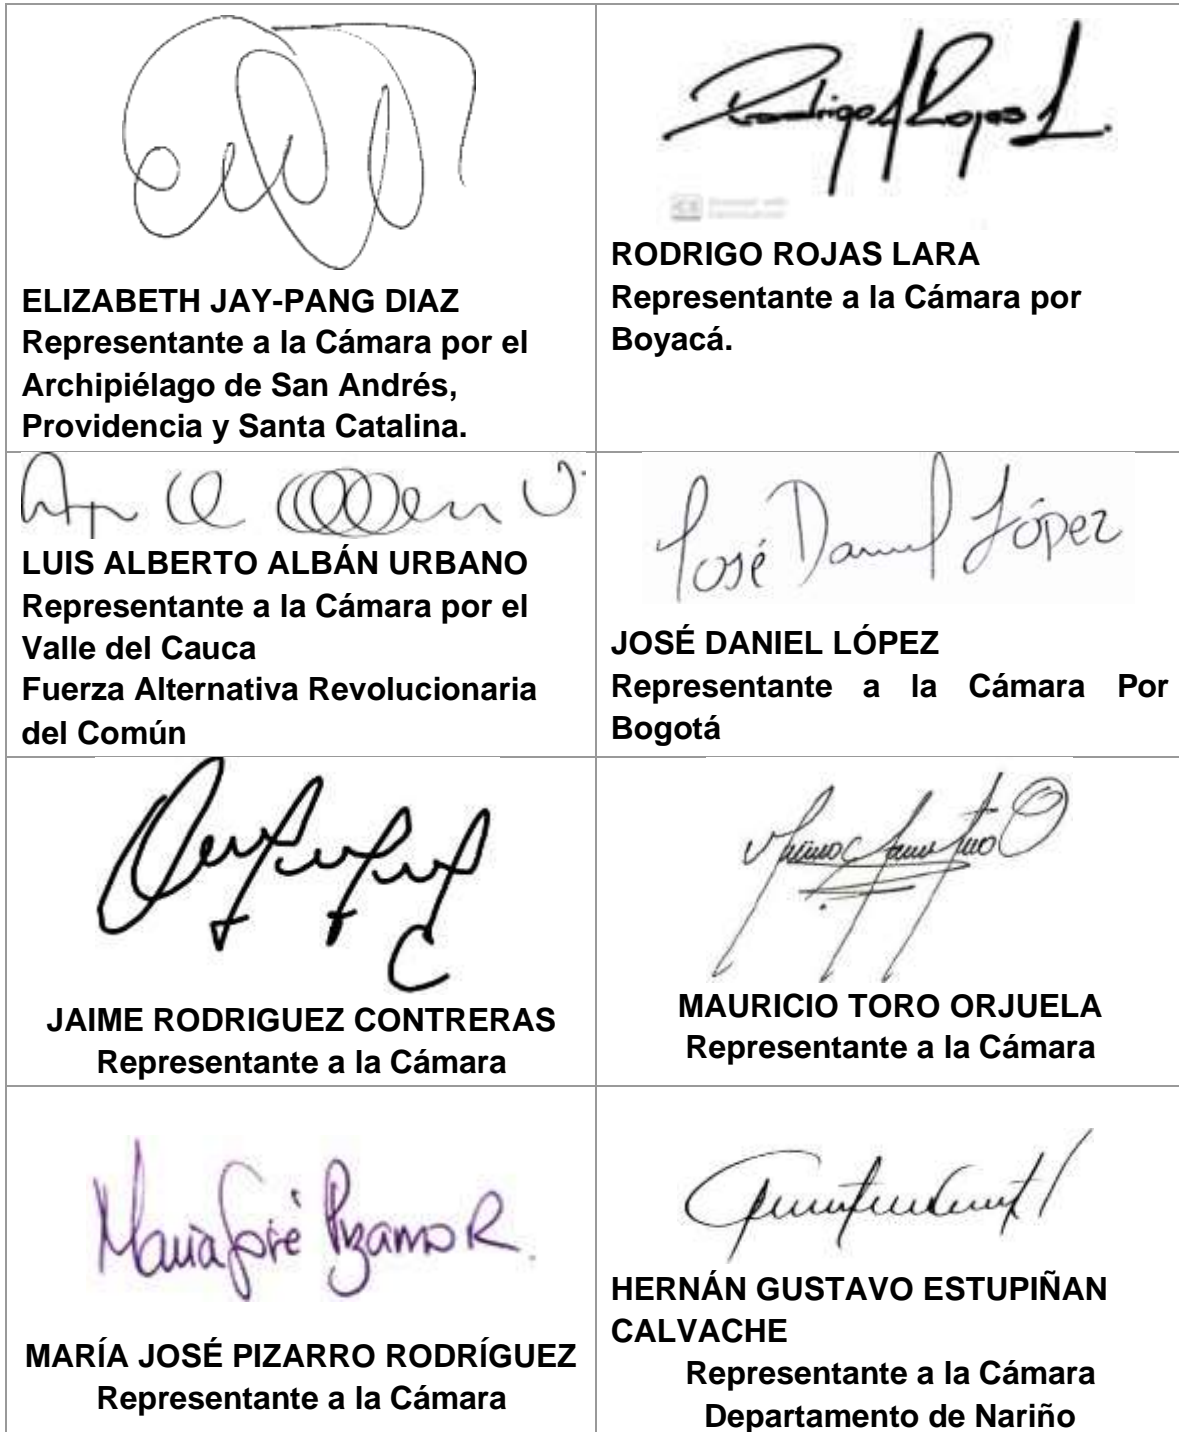 Rodrigo Rojas L.
ELIZABETH JAY-PANG DIAZ
Representante a la Cámara por el
Archipiélago de San Andrés,
Providencia y Santa Catalina.
RODRIGO ROJAS LARA
Representante a la Cámara por
Boyacá.
LUIS ALBERTO ALBÁN URBANO
Representante a la Cámara por el
Valle del Cauca
Fuerza Alternativa Revolucionaria
del Común
José Daniel López
JOSÉ DANIEL LÓPEZ
Representante a la Cámara Por
Bogotá
JAIME RODRIGUEZ CONTRERAS
Representante a la Cámara
MAURICIO TORO ORJUELA
Representante a la Cámara
María José Pizarro R.
MARÍA JOSÉ PIZARRO RODRÍGUEZ
Representante a la Cámara
HERNÁN GUSTAVO ESTUPIÑAN
CALVACHE
Representante a la Cámara
Departamento de Nariño